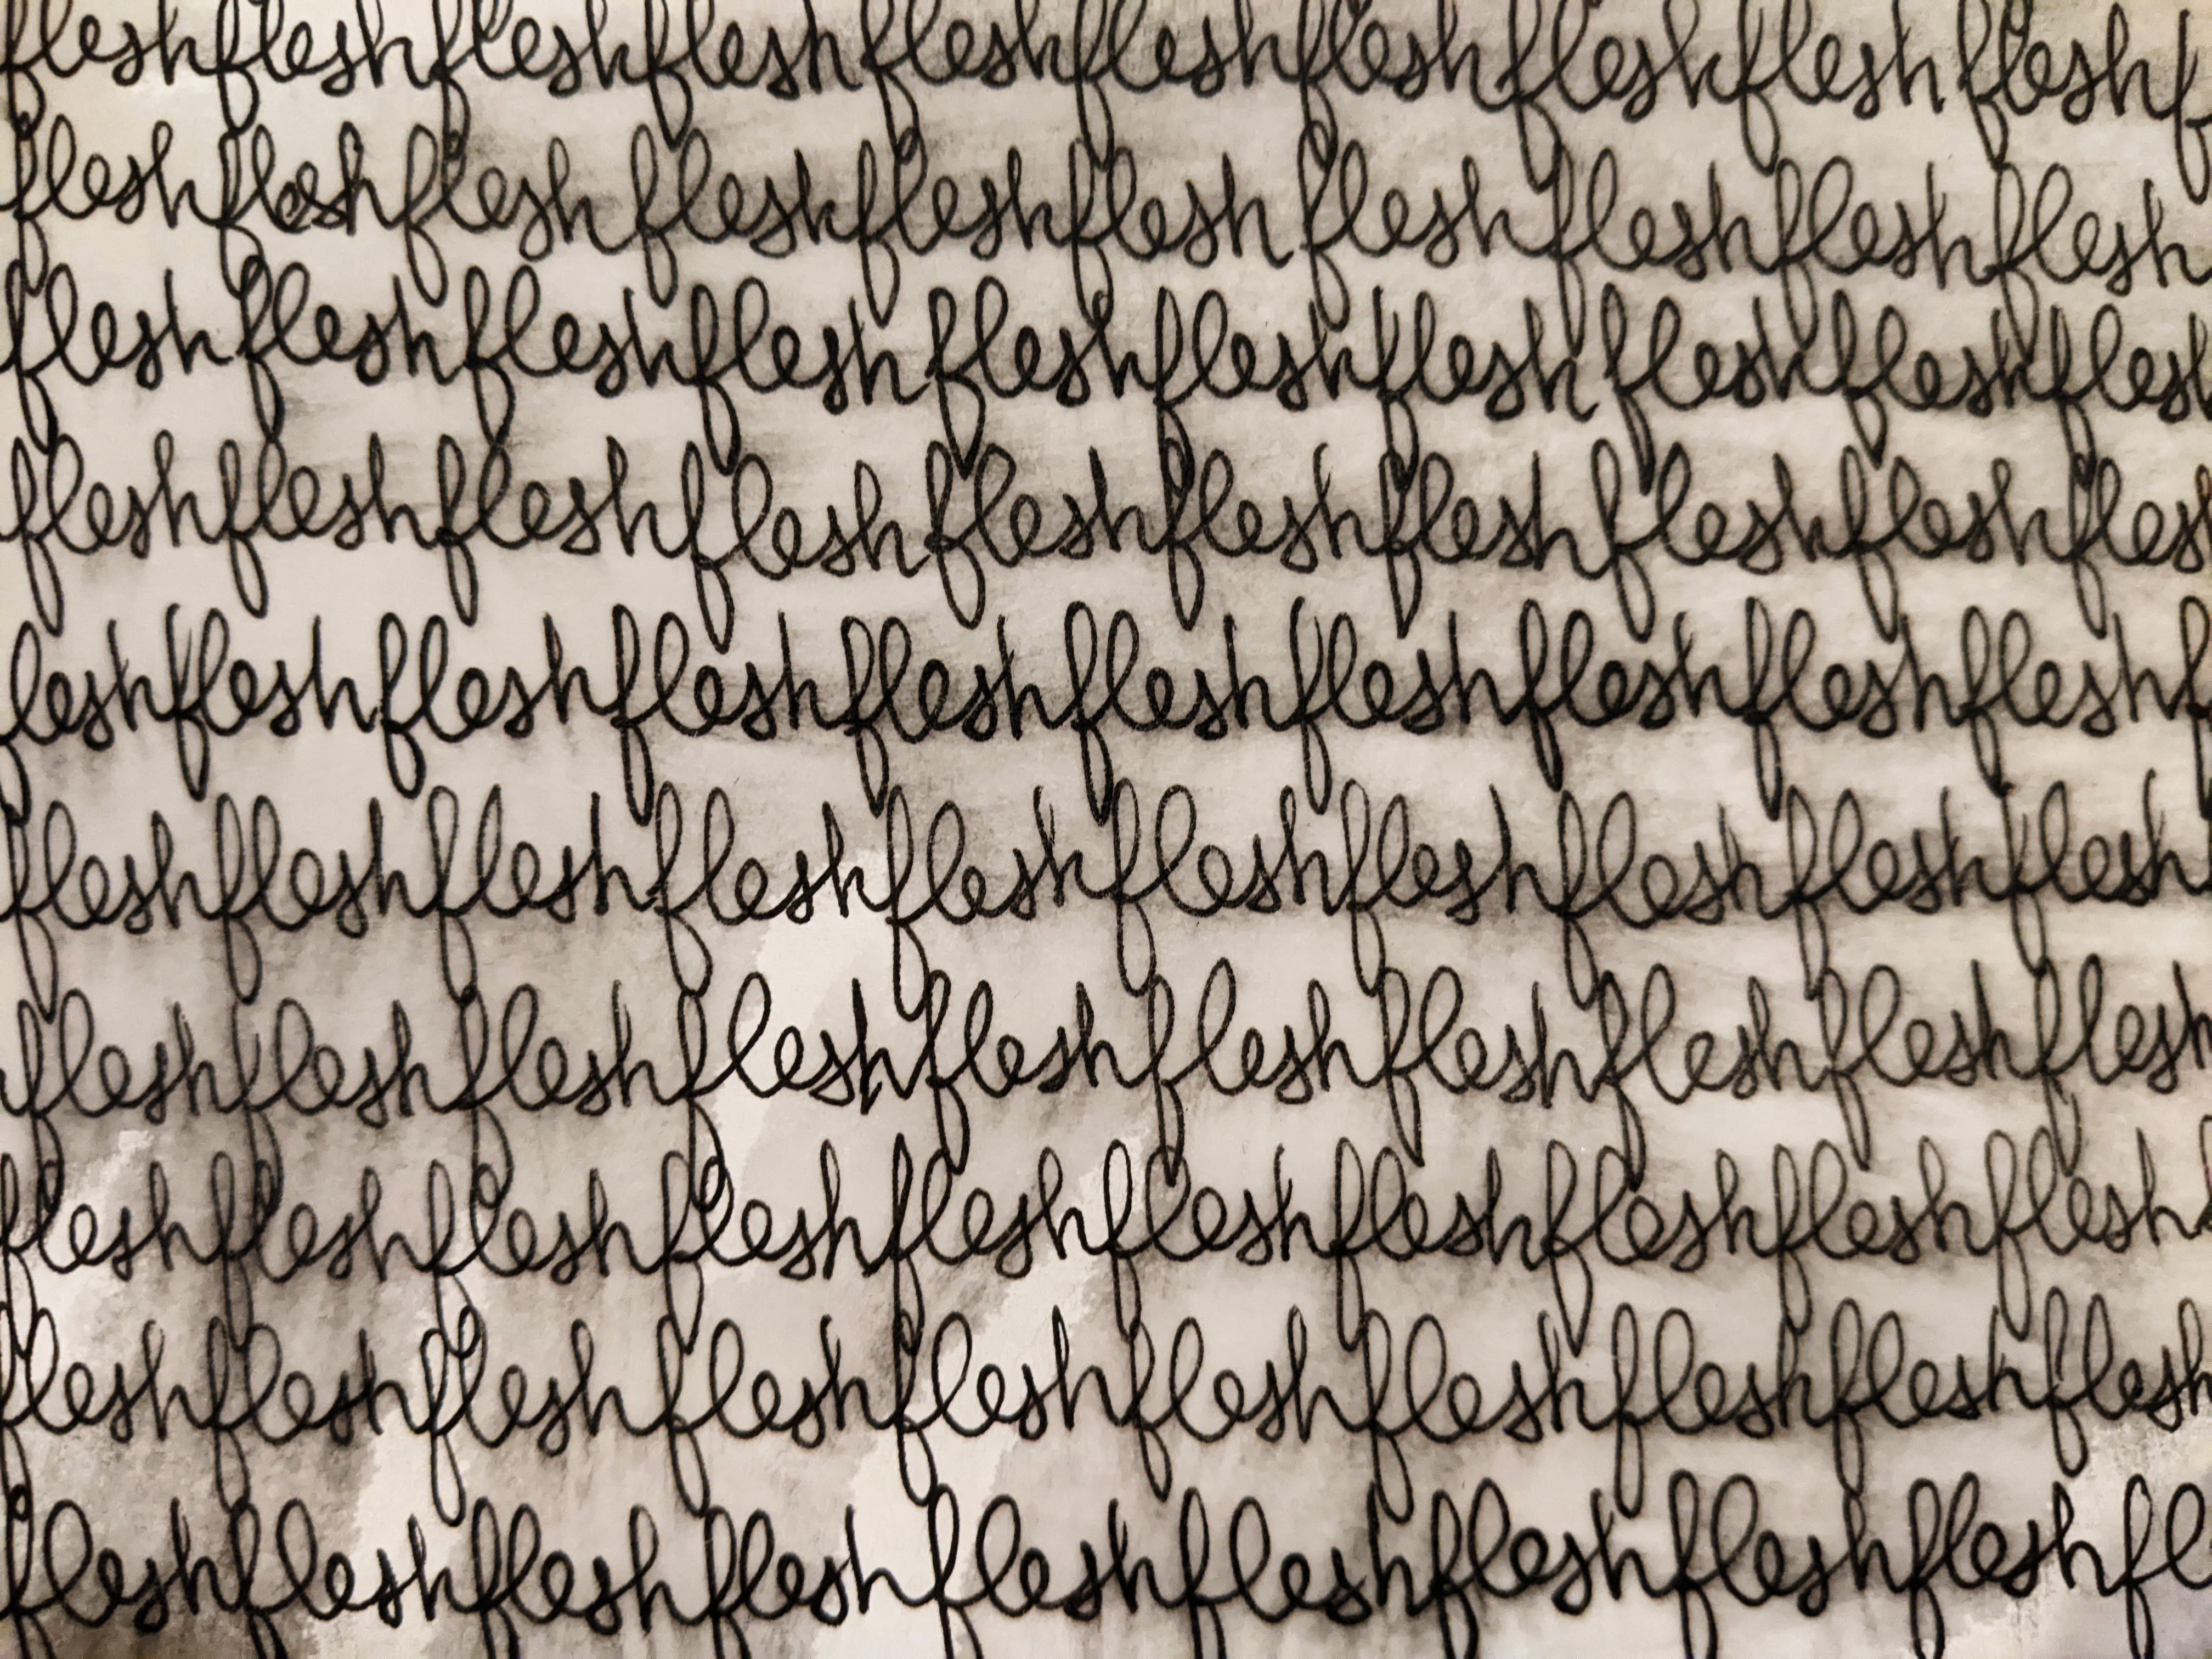 fleshfleshfleshfleshfleshfleshfleshfleshfleshfleshf
fleshfleshfleshfleshfleshfleshfleshfleshfleshflesh
fleshfleshfleshfleshfleshfleshfleshfleshfleshflesh
fleshfleshfleshfleshfleshfleshfleshfleshfleshfles
leshfleshfleshfleshfleshfleshfleshfleshfleshfleshf
fleshfleshfleshfleshfleshfleshfleshfleshfleshflesh
fleshfleshfleshfleshfleshfleshfleshfleshfleshflesh
fleshfleshfleshfleshfleshfleshfleshfleshfleshflesh
fleshfleshfleshfleshfleshfleshfleshfleshfleshflesh
fleshfleshfleshfleshfleshfleshfleshfleshfleshfl